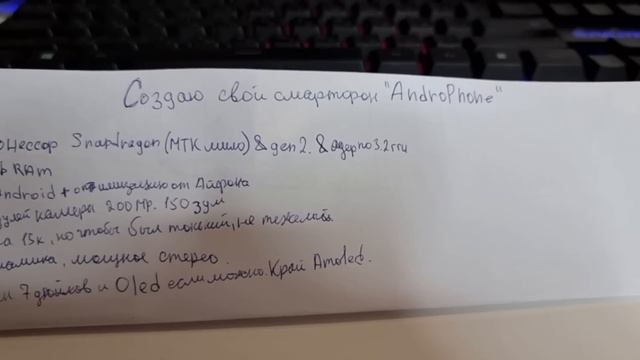 Создаю свой смартфон "AndroPhone"
оцессор Snapdragon (МТК мимо) 8 ген 2. 8 ядер по 3.2 ггц
b RAm
ndroid + оптимизацию от Айфона
дулей камеры 200 Мр. 150 зум
на 15к, но чтобы был тонкий, не тяжелый.
намика, мощное стерео.
7 дюймов и Oled если можно. Край Amoled.